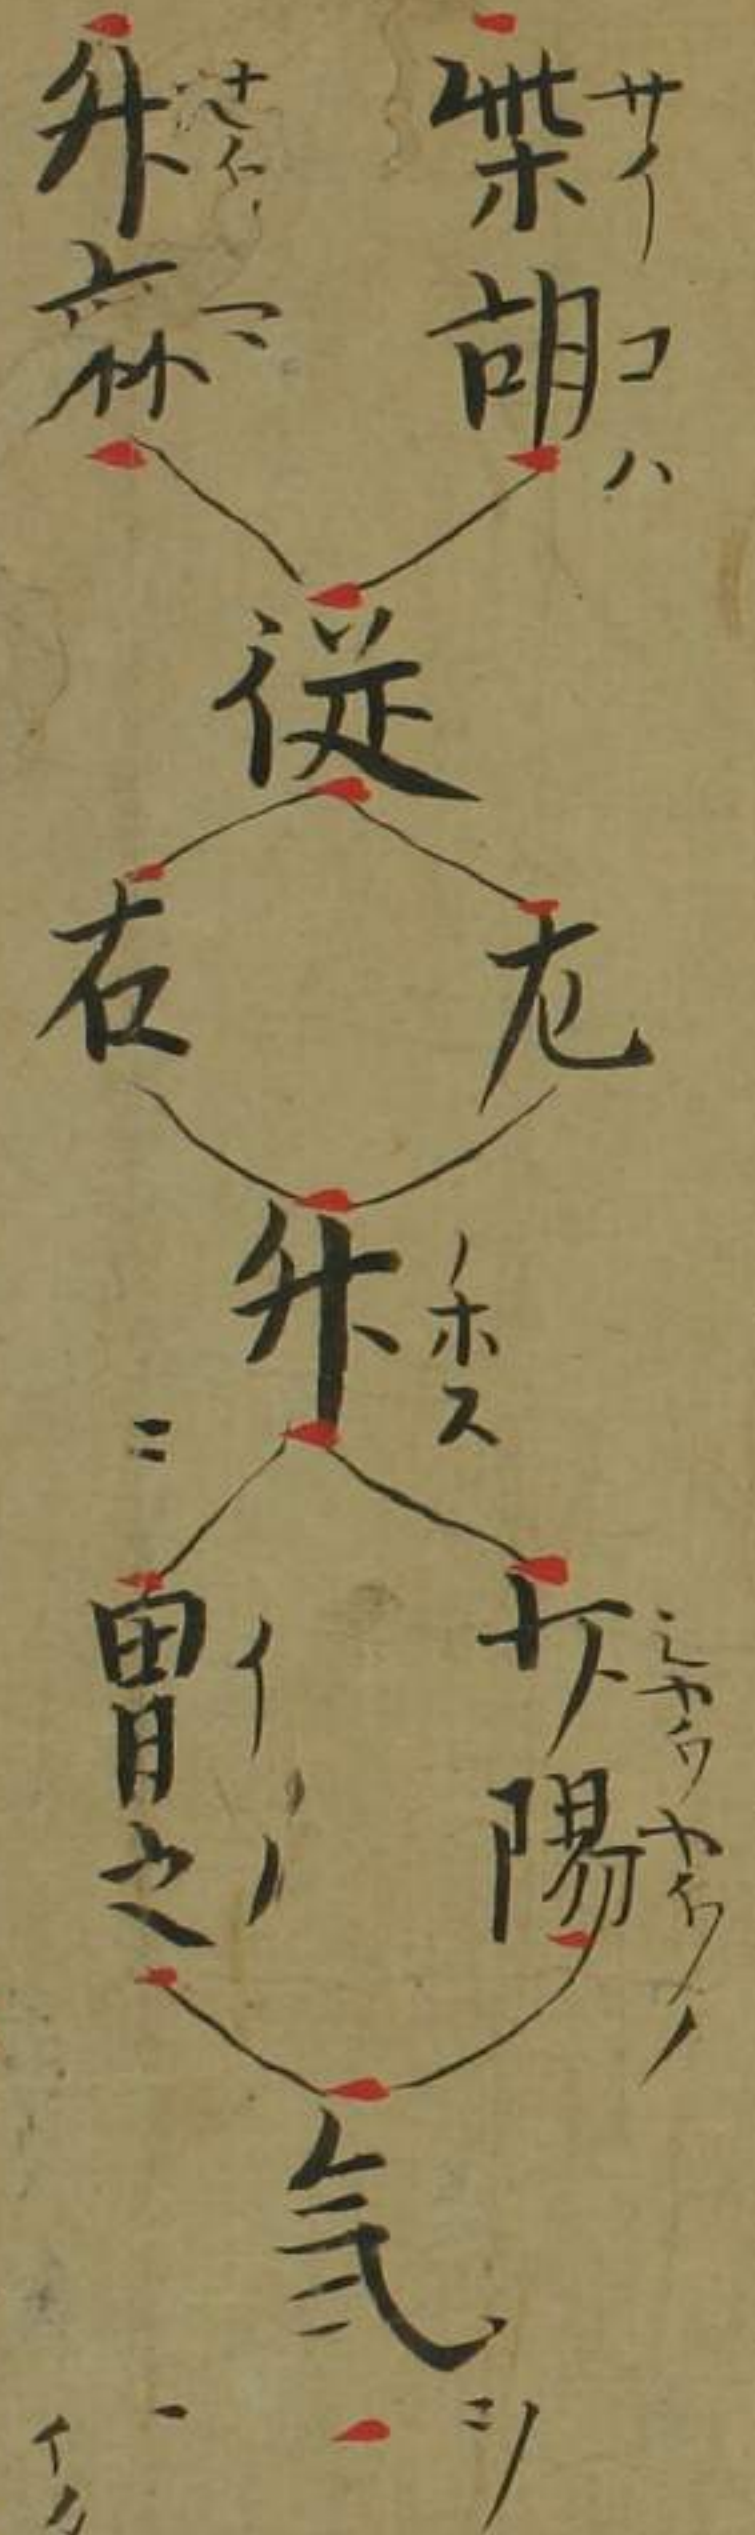 柴胡
サイ
コハ
升麻
マ
従
左
右
升
ノホス
二
少陽
シヤウヤウノ
胃之
イノ
気
一